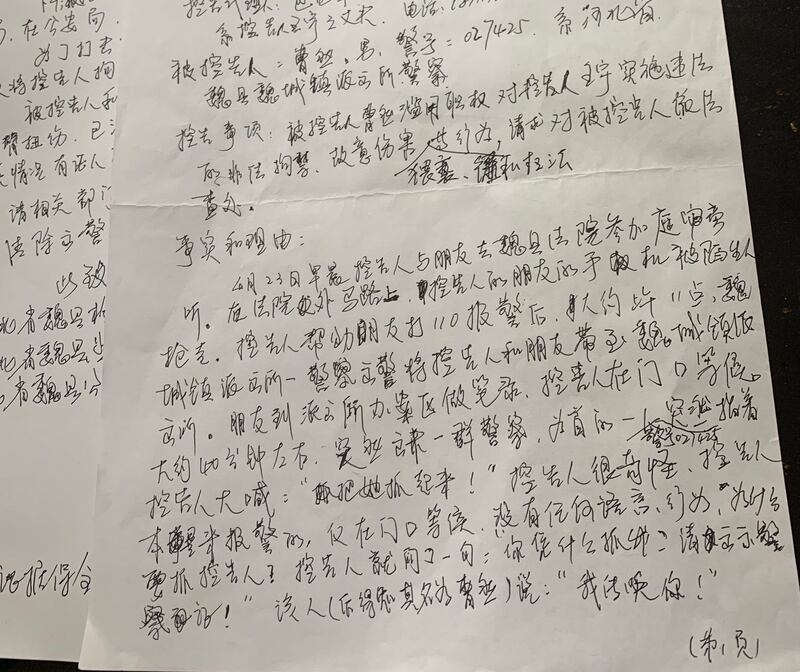 控告代理人:
系控告人王宇之丈夫. 电话:
被控告人:曹继, 男, 警号:027425. 系河北省
魏县魏城镇派出所警察
控告事项:被控告人曹继滥用职权对控告人王宇实施违法
的非法拘禁、故意伤害、猥亵、徇私枉法等行为, 请求对被控告人依法
查处.
事实和理由:
4月23日早晨控告人与朋友去魏县法院参加庭审旁
听. 在法院外马路上, 控告人的朋友的手机被陌生人
抢走. 控告人帮助朋友打110报警后, 大约上午11点, 魏
城镇派出所一警察出警将控告人和朋友带至魏城镇派
出所. 朋友到派出所办案区做笔录, 控告人在门口等候.
大约40分钟左右, 突然出来一群警察, 为首的一人 警号027425 突然指着
控告人大喊:“把她抓起来!” 控告人很奇怪, 控告人
本是来报警的, 仅在门口等候, 没有任何语言、行为, 为什么
要抓控告人? 控告人就问了一句:“你凭什么抓我? 请出示警
察证!” 该人(后得知其名为曹继)说:“我传唤你!”
(第1页)
在公安局
为了打击
将控告人拘
被控告人和
臂扭伤. 已
情况有证人
请相关部门
法除立警
此致
北省魏县
省魏县公
省魏县公